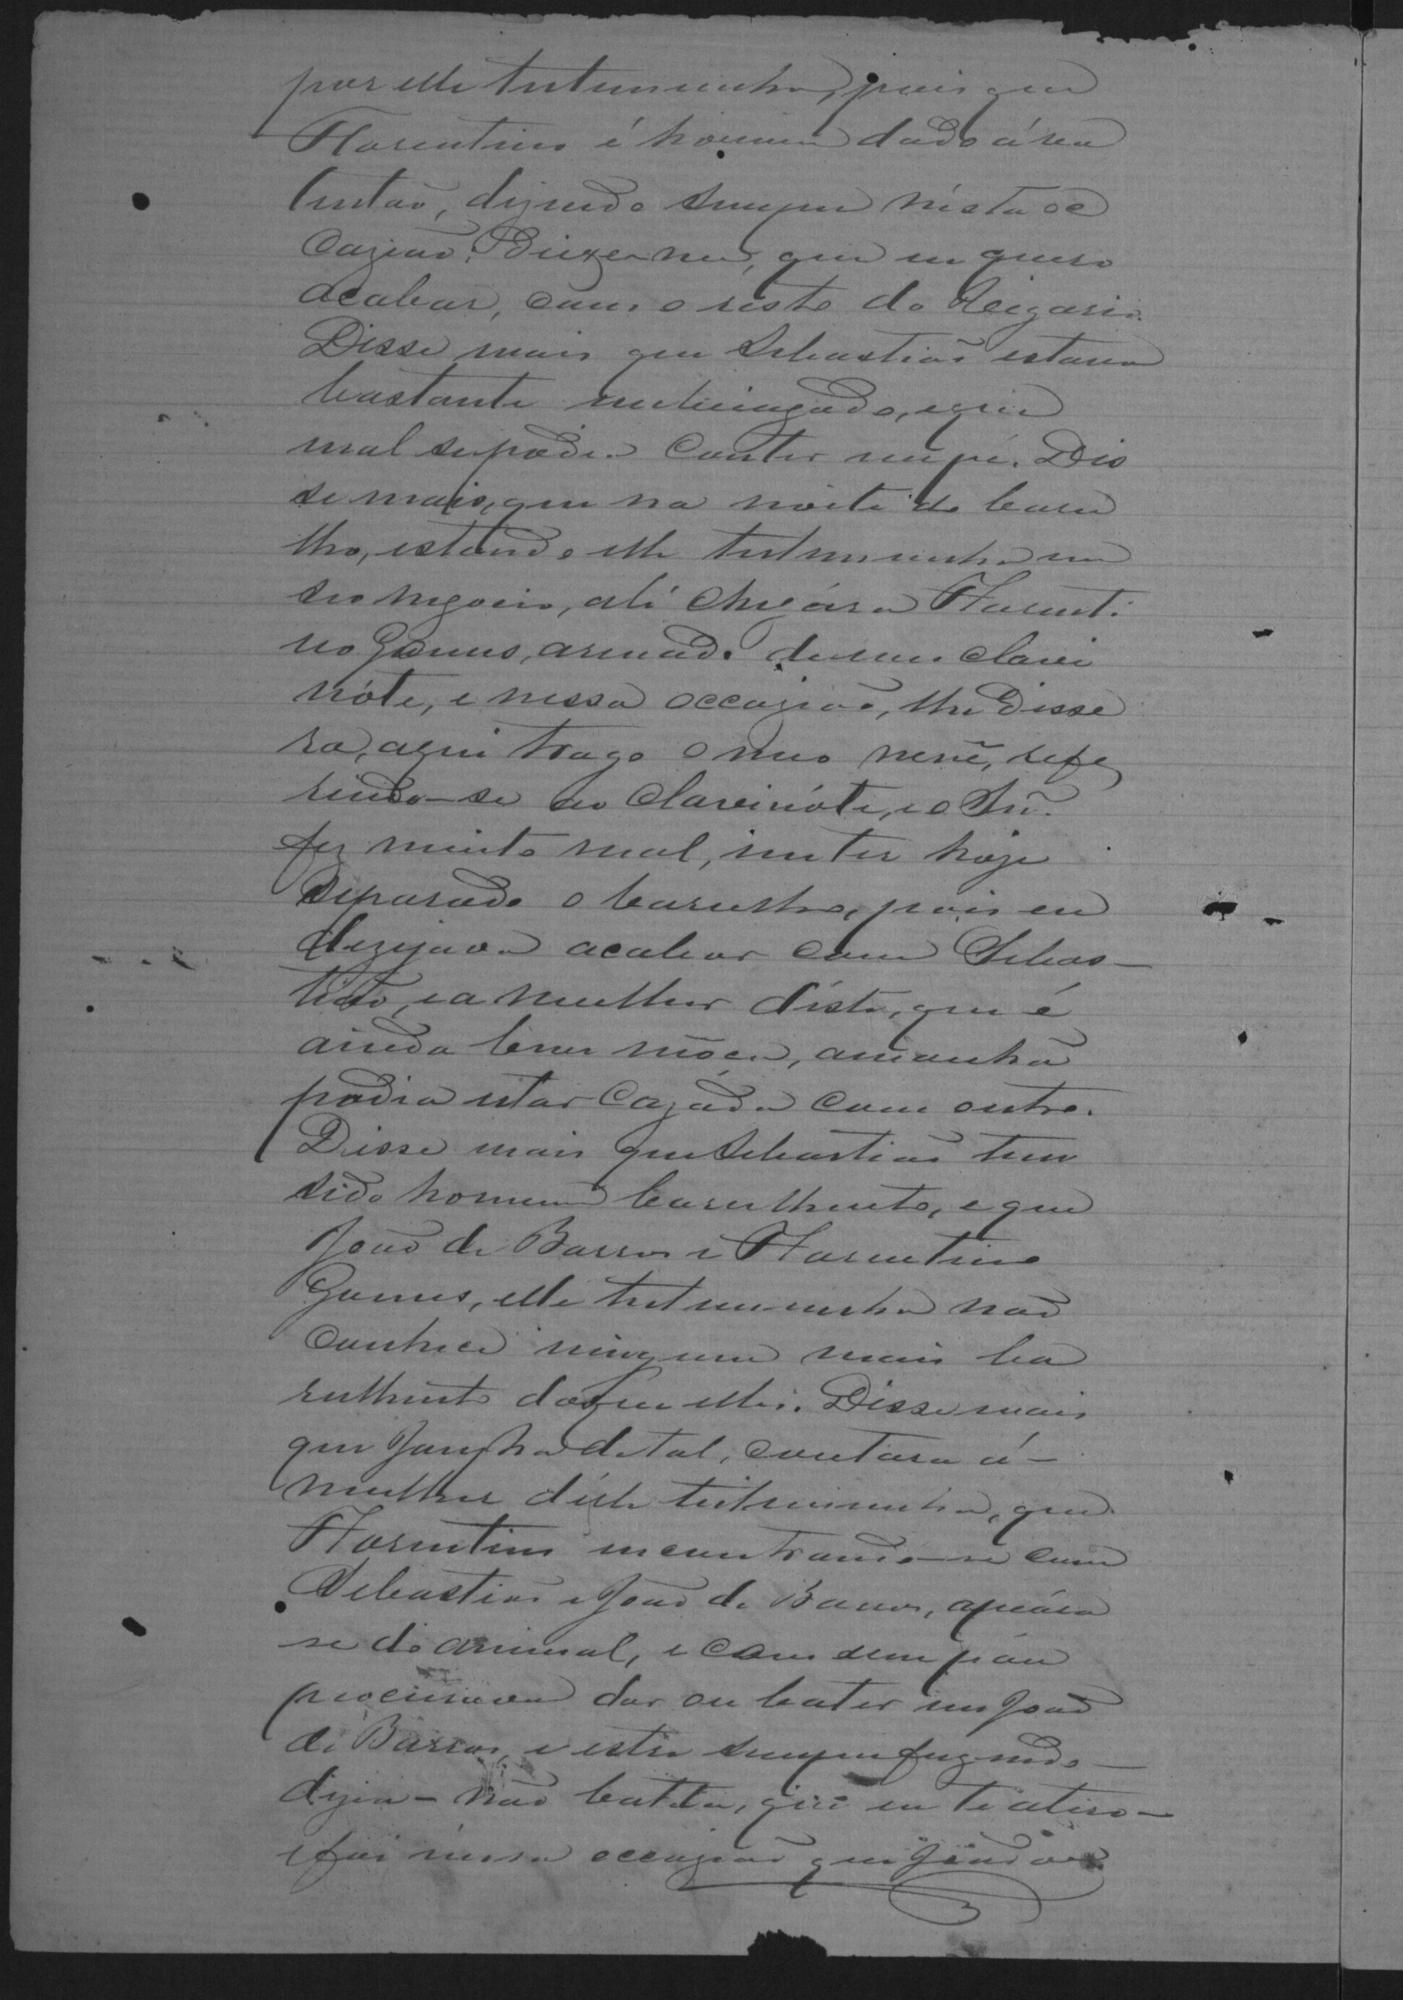 por elle testemunha, pois que
Florentino é homem dado á va
lentão, dizendo sempre nésta oc
cazião: Deixe-me, que eu quero
acabar, com o resto do
Disse mais que Sebastião estava
bastante embriagado, e que
mal se podia conter em pé. Dis
se mais, que na noite do baru
lho, estando elle testemunha em
seo negocio, alí chegára Florenti
no Gomes, armado de um clavi
nóte, e nessa occazião, lhe disse
ra, aqui trago o meo nenê, refe
rindo-se ao clavinóte, e o Snr.
fez muito mal, em ter hoje
separado o barulho, pois eu
dezejava acabar com Sebas-
tião, e a mulher déste, que é
ainda bem móça, amanhã
podia estar cazáda com outro.
Disse mais que Sebastião tem
sido homem barulhento, e que
João de Barros e Florentino
Gomes, elle testemunha não
conhece ninguem mais ba
rulhento do que elles. Disse mais
que de tal, contara á-
mulher déste testemunha, que
Florentino encontrando-se com
Sebastião e João de Barros, apeára
se do animal, e com um páu
procurava dar ou bater em João
de Barros, e este sempre fugindo-
dizia- não batta, que eu te atiro-
e foi nessa occazião que João